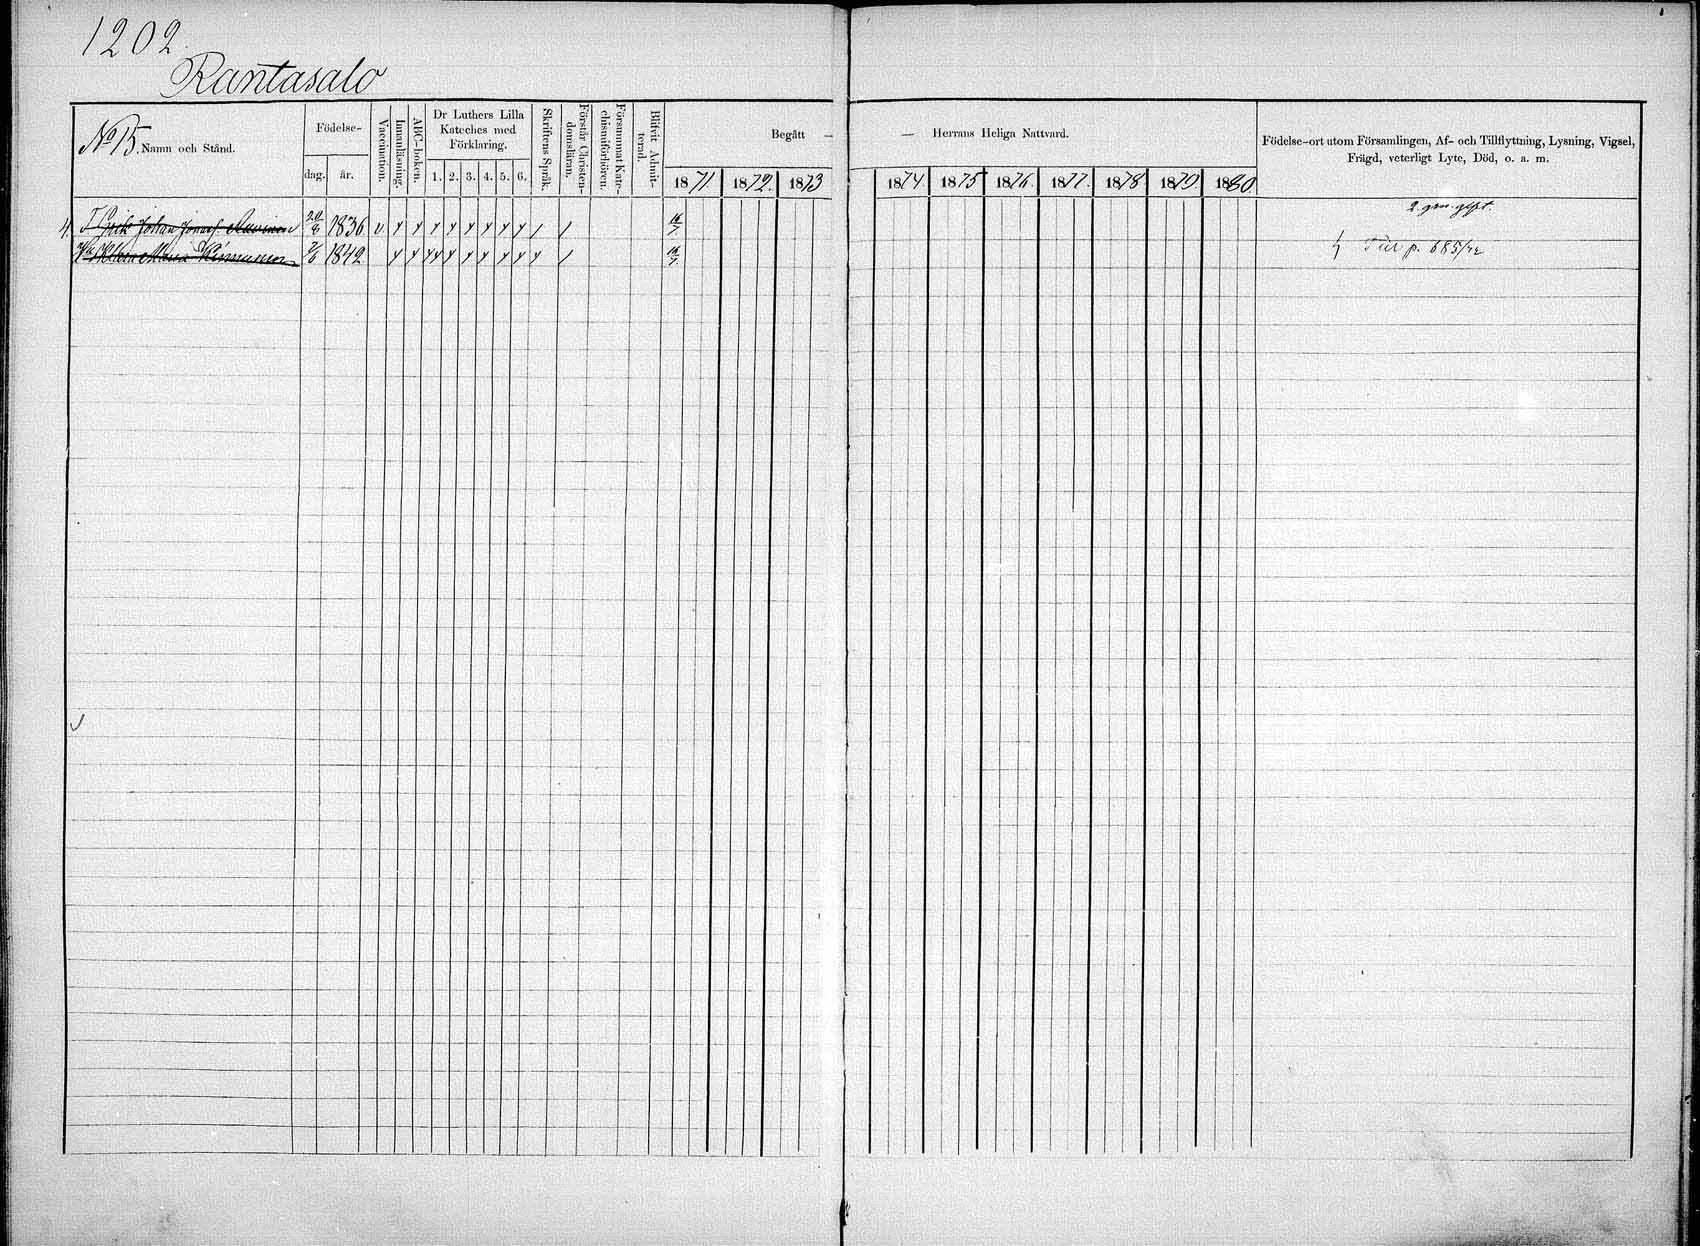 1202.
Rantasalo
No 15. Namn och Stånd.
Födelse-
dag. år.
Vaccination.
Innanläsning.
ABC-boken.
Dr Luthers Lilla
Kateches med
Förklaring.
1. 2. 3. 4. 5. 6.
Skriftens Språk.
Förstår Christen-
domsläran.
Försummat Kate-
chismiförhören.
Blifvit Admit-
terad.
Begått — — Herrans Heliga Nattvard.
1871. 1872. 1873 1874. 1875 1876. 1877. 1878 1879. 1880.
Födelse-ort utom Församlingen, Af- och Tillflyttning, Lysning, Vigsel,
Frägd, veterligt Lyte, Död, o. a. m.
2. gm. gift.
4. Erik Johan 1836 v
Maria 1842.
p. 685/72